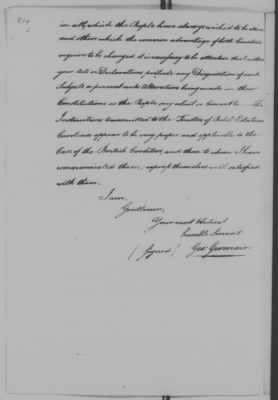 in all, which the People have always wished to be
and others which the common advantage of both Countries
require to be changed it is necessary to be attentive that neither
your Acts or Declarations preclude any Disquisition of such
Subjects or prevent such Alterations being made in their
Constitutions as the People may solicit or Consent to. The
Instructions transmitted to the Trustees of Rebel Estates in
Carolina appear to be very proper and applicable to the
Case of the British Creditors, and those to whom I have
communicated them, express themselves well satisfied
with them.
I am,
Gentlemen,
Your most Obedient
humble Servant
(Signed) Geo: Germain